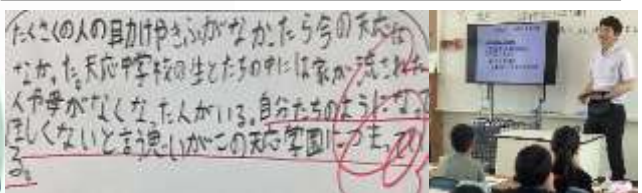 たくさくの人の目カけやきふがなかったら今の天応は
なかった。天応中学校の生とたちの中には家が流された
人や母がなくなった人がいる。自分たちのようになって
ほしくないと言う思いがこの天応学園につまってい
る。